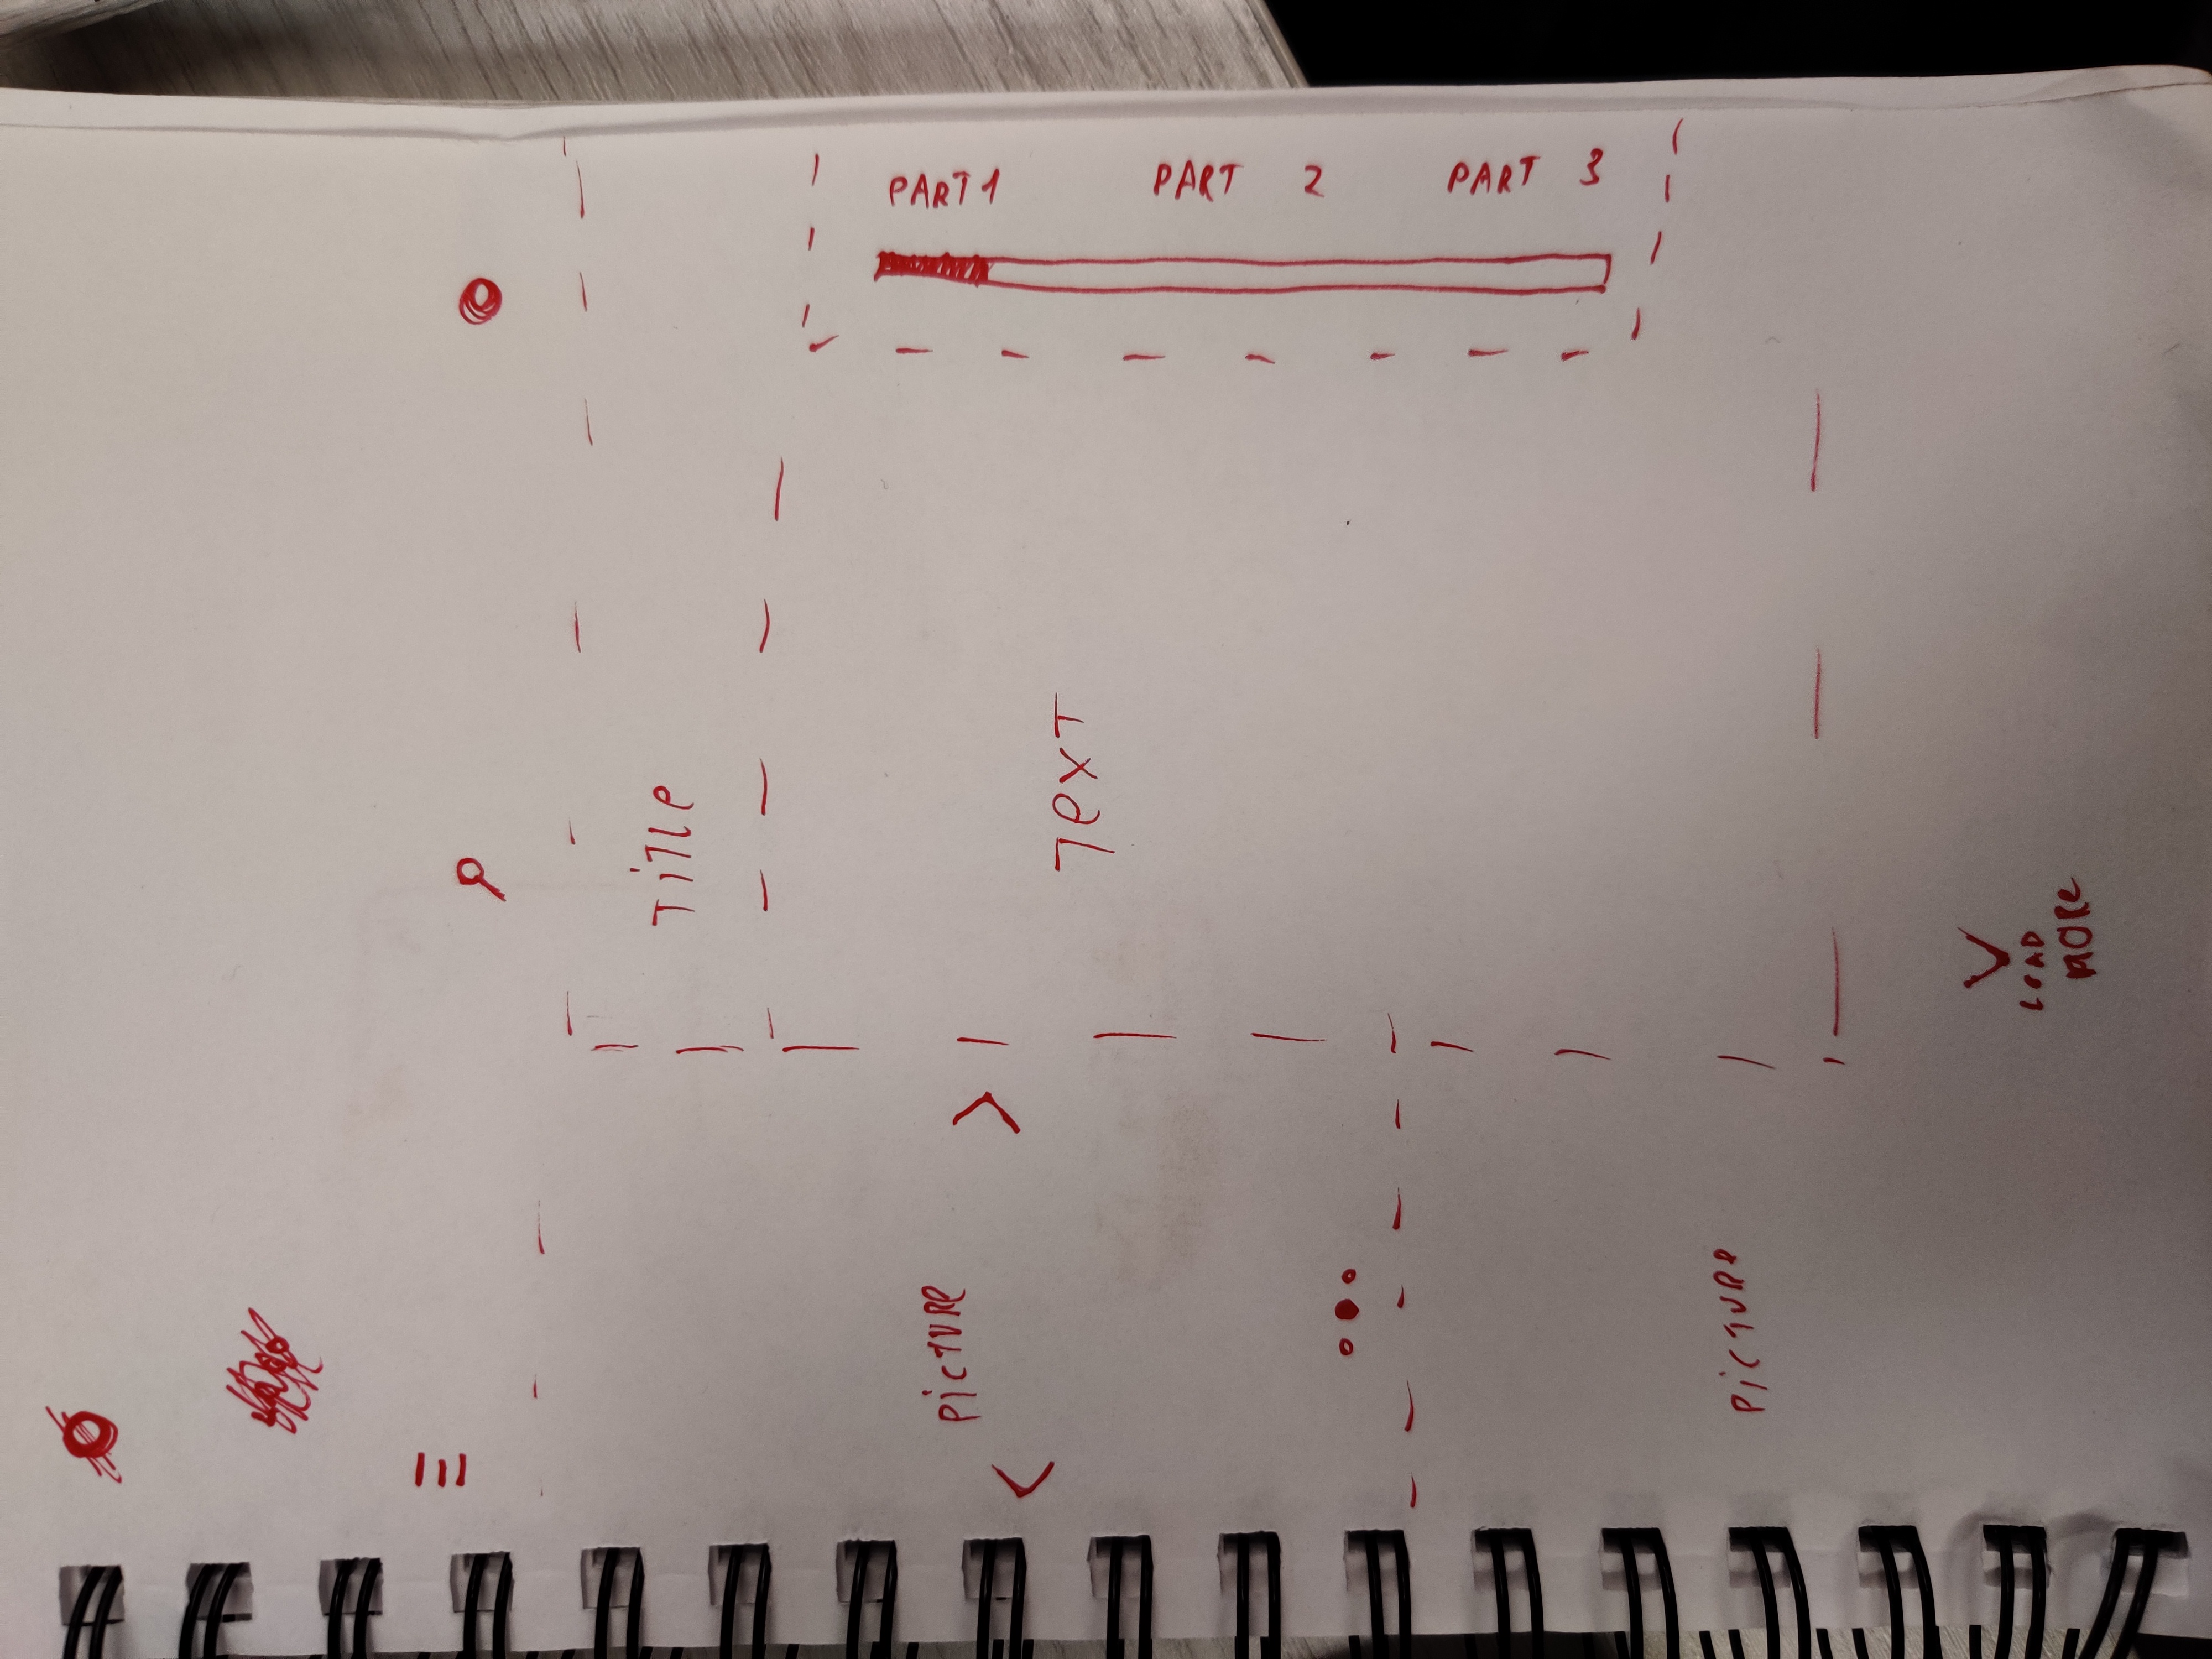 Title
PICTURE
TEXT
PART 1
PART 2
PART 3
PICTURE
LOAD
MORE